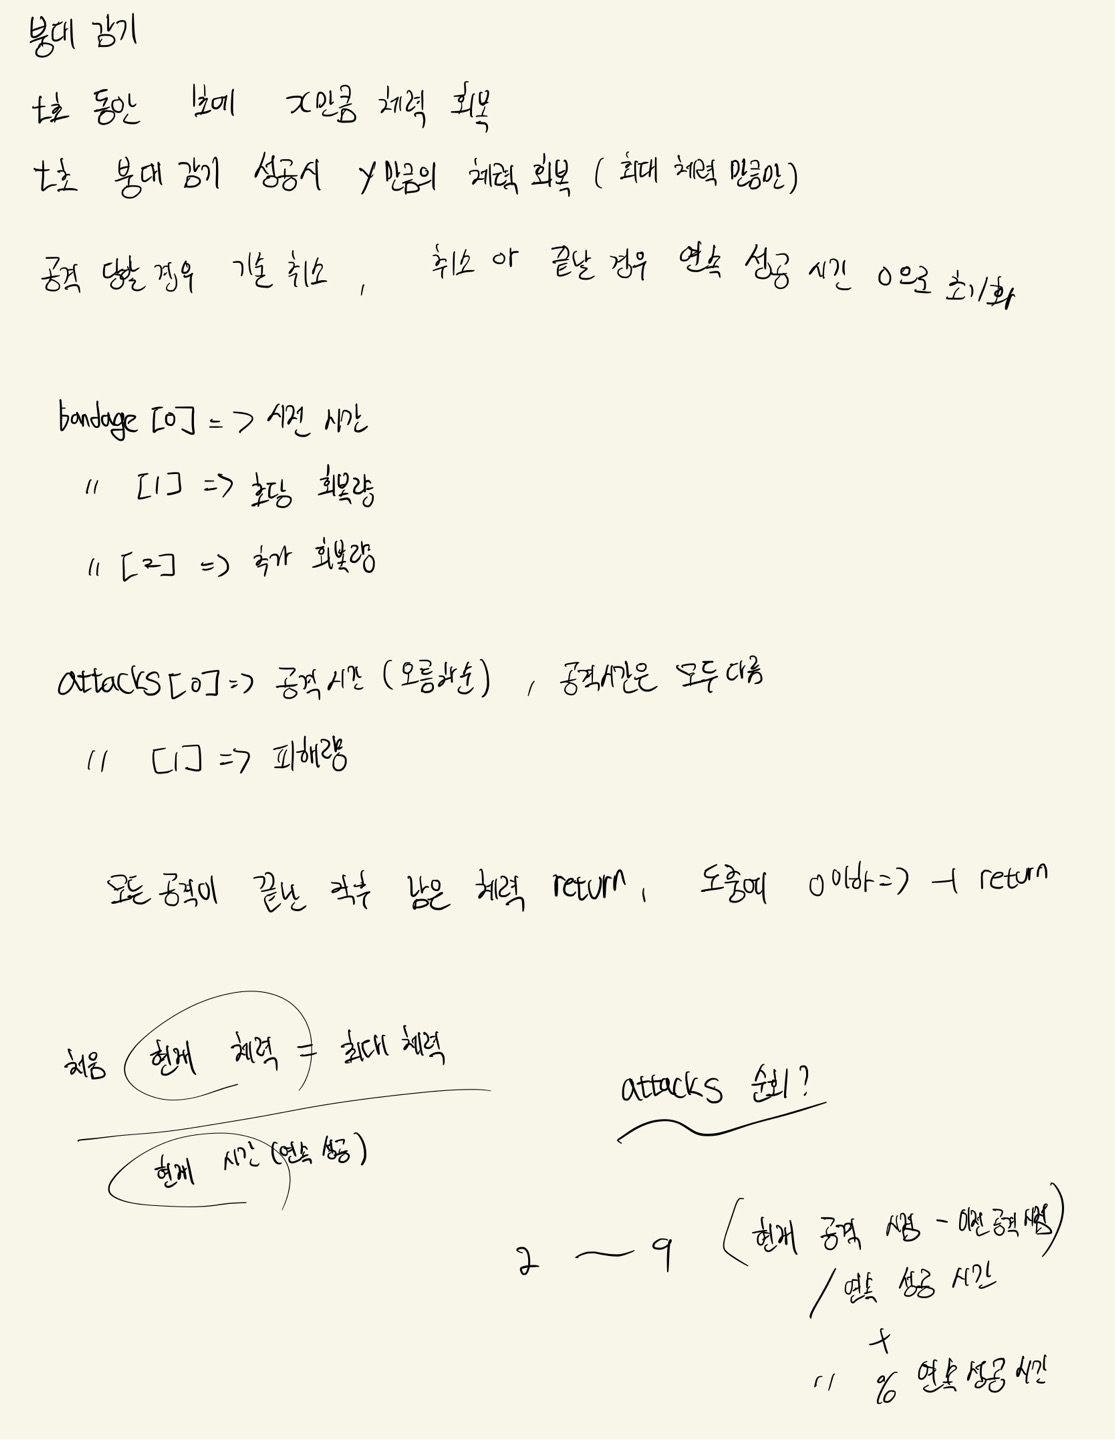 붕대 감기
t초 동안 1초에 x만큼 체력 회복
t초 붕대 감기 성공시 y만큼의 체력 회복 (최대 체력 만큼만)
공격 당할 경우 기술 취소, 취소 or 끝날 경우 연속 성공 시간 0으로 초기화
bandage [0] => 시전 시간
〃 [1] => 초당 회복량
〃 [2] => 추가 회복량
attacks [0] => 공격 시간 (오름차순), 공격시간은 모두 다름
〃 [1] => 피해량
모든 공격이 끝난 직후 남은 체력 return, 도중에 0이하 => -1 return
처음 현재 체력 = 최대 체력
현재 시간 (연속 성공)
attacks 순회?
2 ~ 9 (현재 공격 시점 - 이전 공격 시점)
/ 연속 성공 시간
+
〃 % 연속 성공 시간